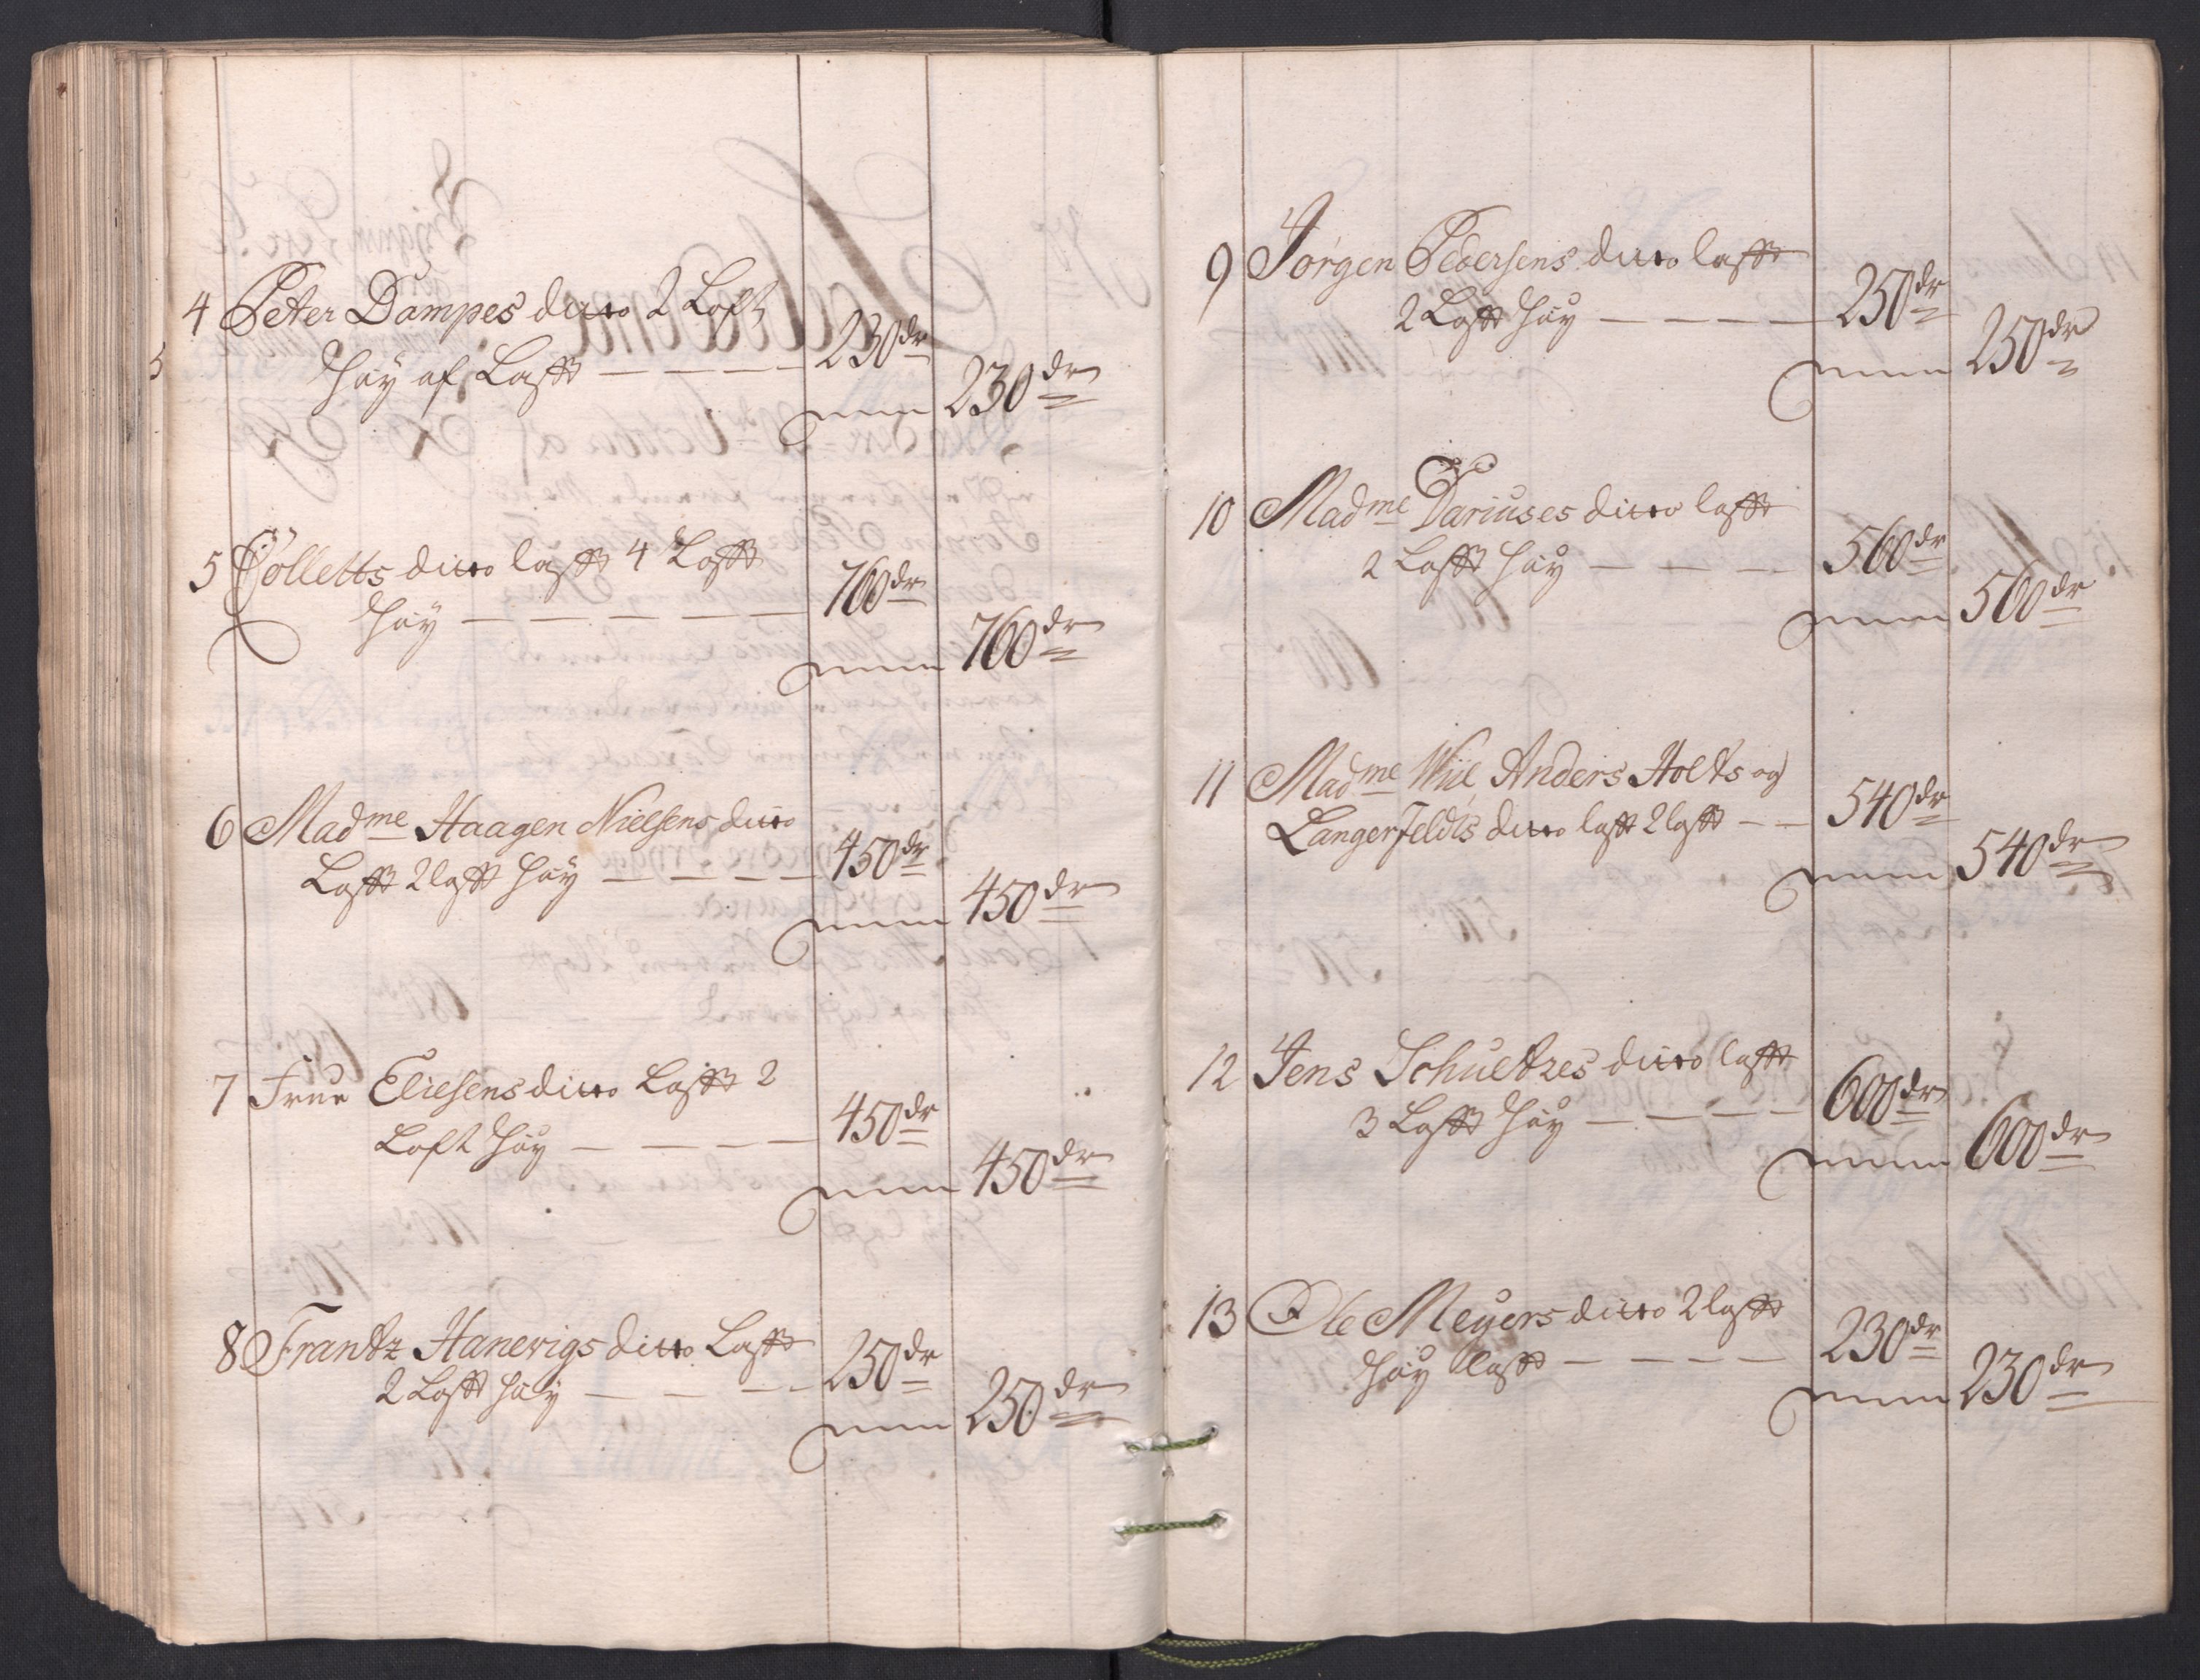 4 Peter Dampes ditto 2 Loft
Høy af Lafft — — — — 230 dr
230 dr
5 Colletts ditto lafft 4 Lafft
Høy — — — — — 760 dr
760 dr
6 Madme Haagen Nielsens ditto
Lafft 2 lafft høy — — — — 450 dr
450 dr
7 Frue Eliesens ditto Lafft 2
Loft Høy — — — — 450 dr
450 dr
8 Frantz Hanewigs ditto Lafft
2 Lafft høy — — — 250 dr
250 dr
9 Jørgen Pedersens ditto lafft
2 Lafft Høy — — — — 250 dr
250 dr
10 Madme Dariuses ditto lafft
2 Lafft Høy — — — — 560 dr
560 dr
11 Madme Wiil, Anders Holts og
Langerfeldts ditto lafft 2 lafft — — 540 dr
540 dr
12 Jens Schueltzes ditto lafft
3 Lafft Høy — — — — 600 dr
600 dr
13 Ole Meyers ditto 2 lafft
Høy lafft — — — — 230 dr
230 dr